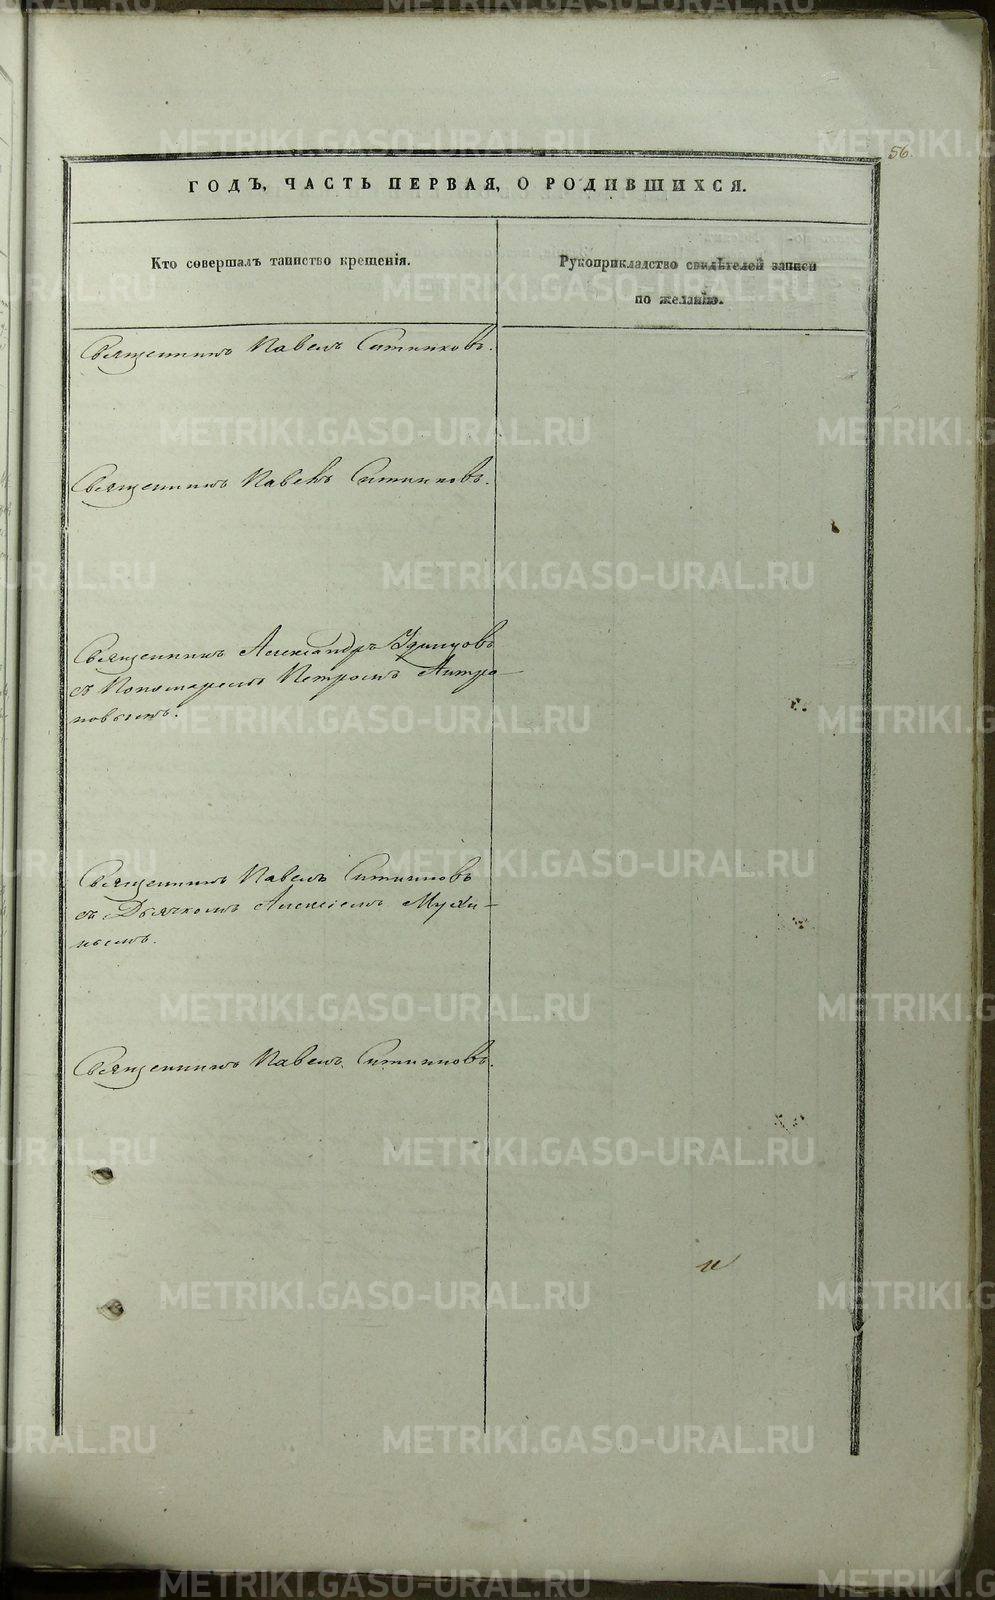 56.
ГОДЪ, ЧАСТЬ ПЕРВАЯ, О РОДИВШИХСЯ.
Кто совершалъ таинство крещенія.
Рукоприкладство свидѣтелей записи
по желанію.
Священникъ Павелъ Ситниковъ.
Священникъ Павелъ Ситниковъ.
Священникъ Александръ Удинцовъ
съ Пономаремъ Петромъ Антро-
повымъ.
Священникъ Павелъ Ситниковъ
съ Дьячкомъ Алексіемъ Мухи-
нымъ.
Священникъ Павелъ Ситниковъ.
METRIKI.GASO-URAL.RU